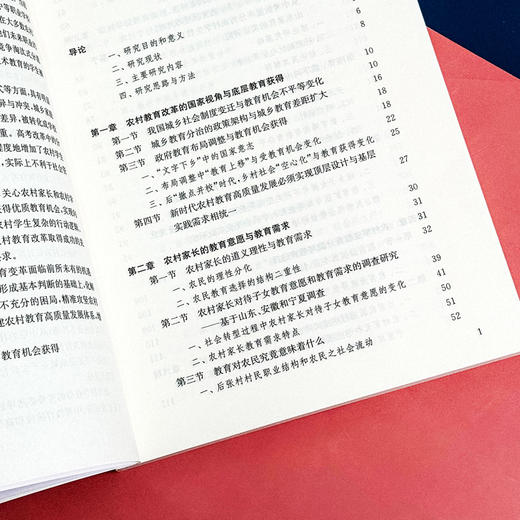 宁等职业学
在大多数农
他们未来职业
竞争淘汰式
术教育的学生
式等方面,具有明
异与冲突,城乡家
差异,被转化成学
。高考改革中的
程度地增加了农村学
,实际上不利于社会
关心农村家长和农村
获得优质教育机会,实
农村学生复杂的行动逻
村教育改革取得成功的
求。
育变革面临前所未有的机遇
形成基本判断的基础上,化解
不充分的困局,精准攻坚农村
建农村教育高质量发展体系,
教育机会获得
导论
一、研究目的和意义
二、研究现状 6
三、主要研究内容 8
四、研究思路与方法
第一章 农村教育改革的国家视角与底层教育获得 10
第一节 我国城乡社会制度变迁与教育机会不平等变化 10
第二节 城乡教育分治的政策架构与城乡教育差距扩大 16
第三节 政府教育布局调整与教育机会获得 18
一、“文字下乡”中的国家意志
二、布局调整中“教育上移”与受教育机会变化 21
三、后“撤点并校”时代,乡村社会“空心化”与教育获得变化 22
第四节 新时代农村教育高质量发展必须实现顶层设计与基层 25
实践需求相统一 27
第二章 农村家长的教育意愿与教育需求
第一节 农村家长的道义理性与教育需求 32
一、农民的理性分化 31
二、农民教育选择的结构二重性 32
第二节 农村家长对待子女教育意愿和教育需求的调查研究
——基于山东、安徽和宁夏调查 39
一、社会转型过程中农村家长对待子女教育意愿的变化 41
二、农村家长教育需求特点 50
第三节 教育对农民究竟意味着什么 51
一、后张村村民职业结构和农民之社会流动 52
1